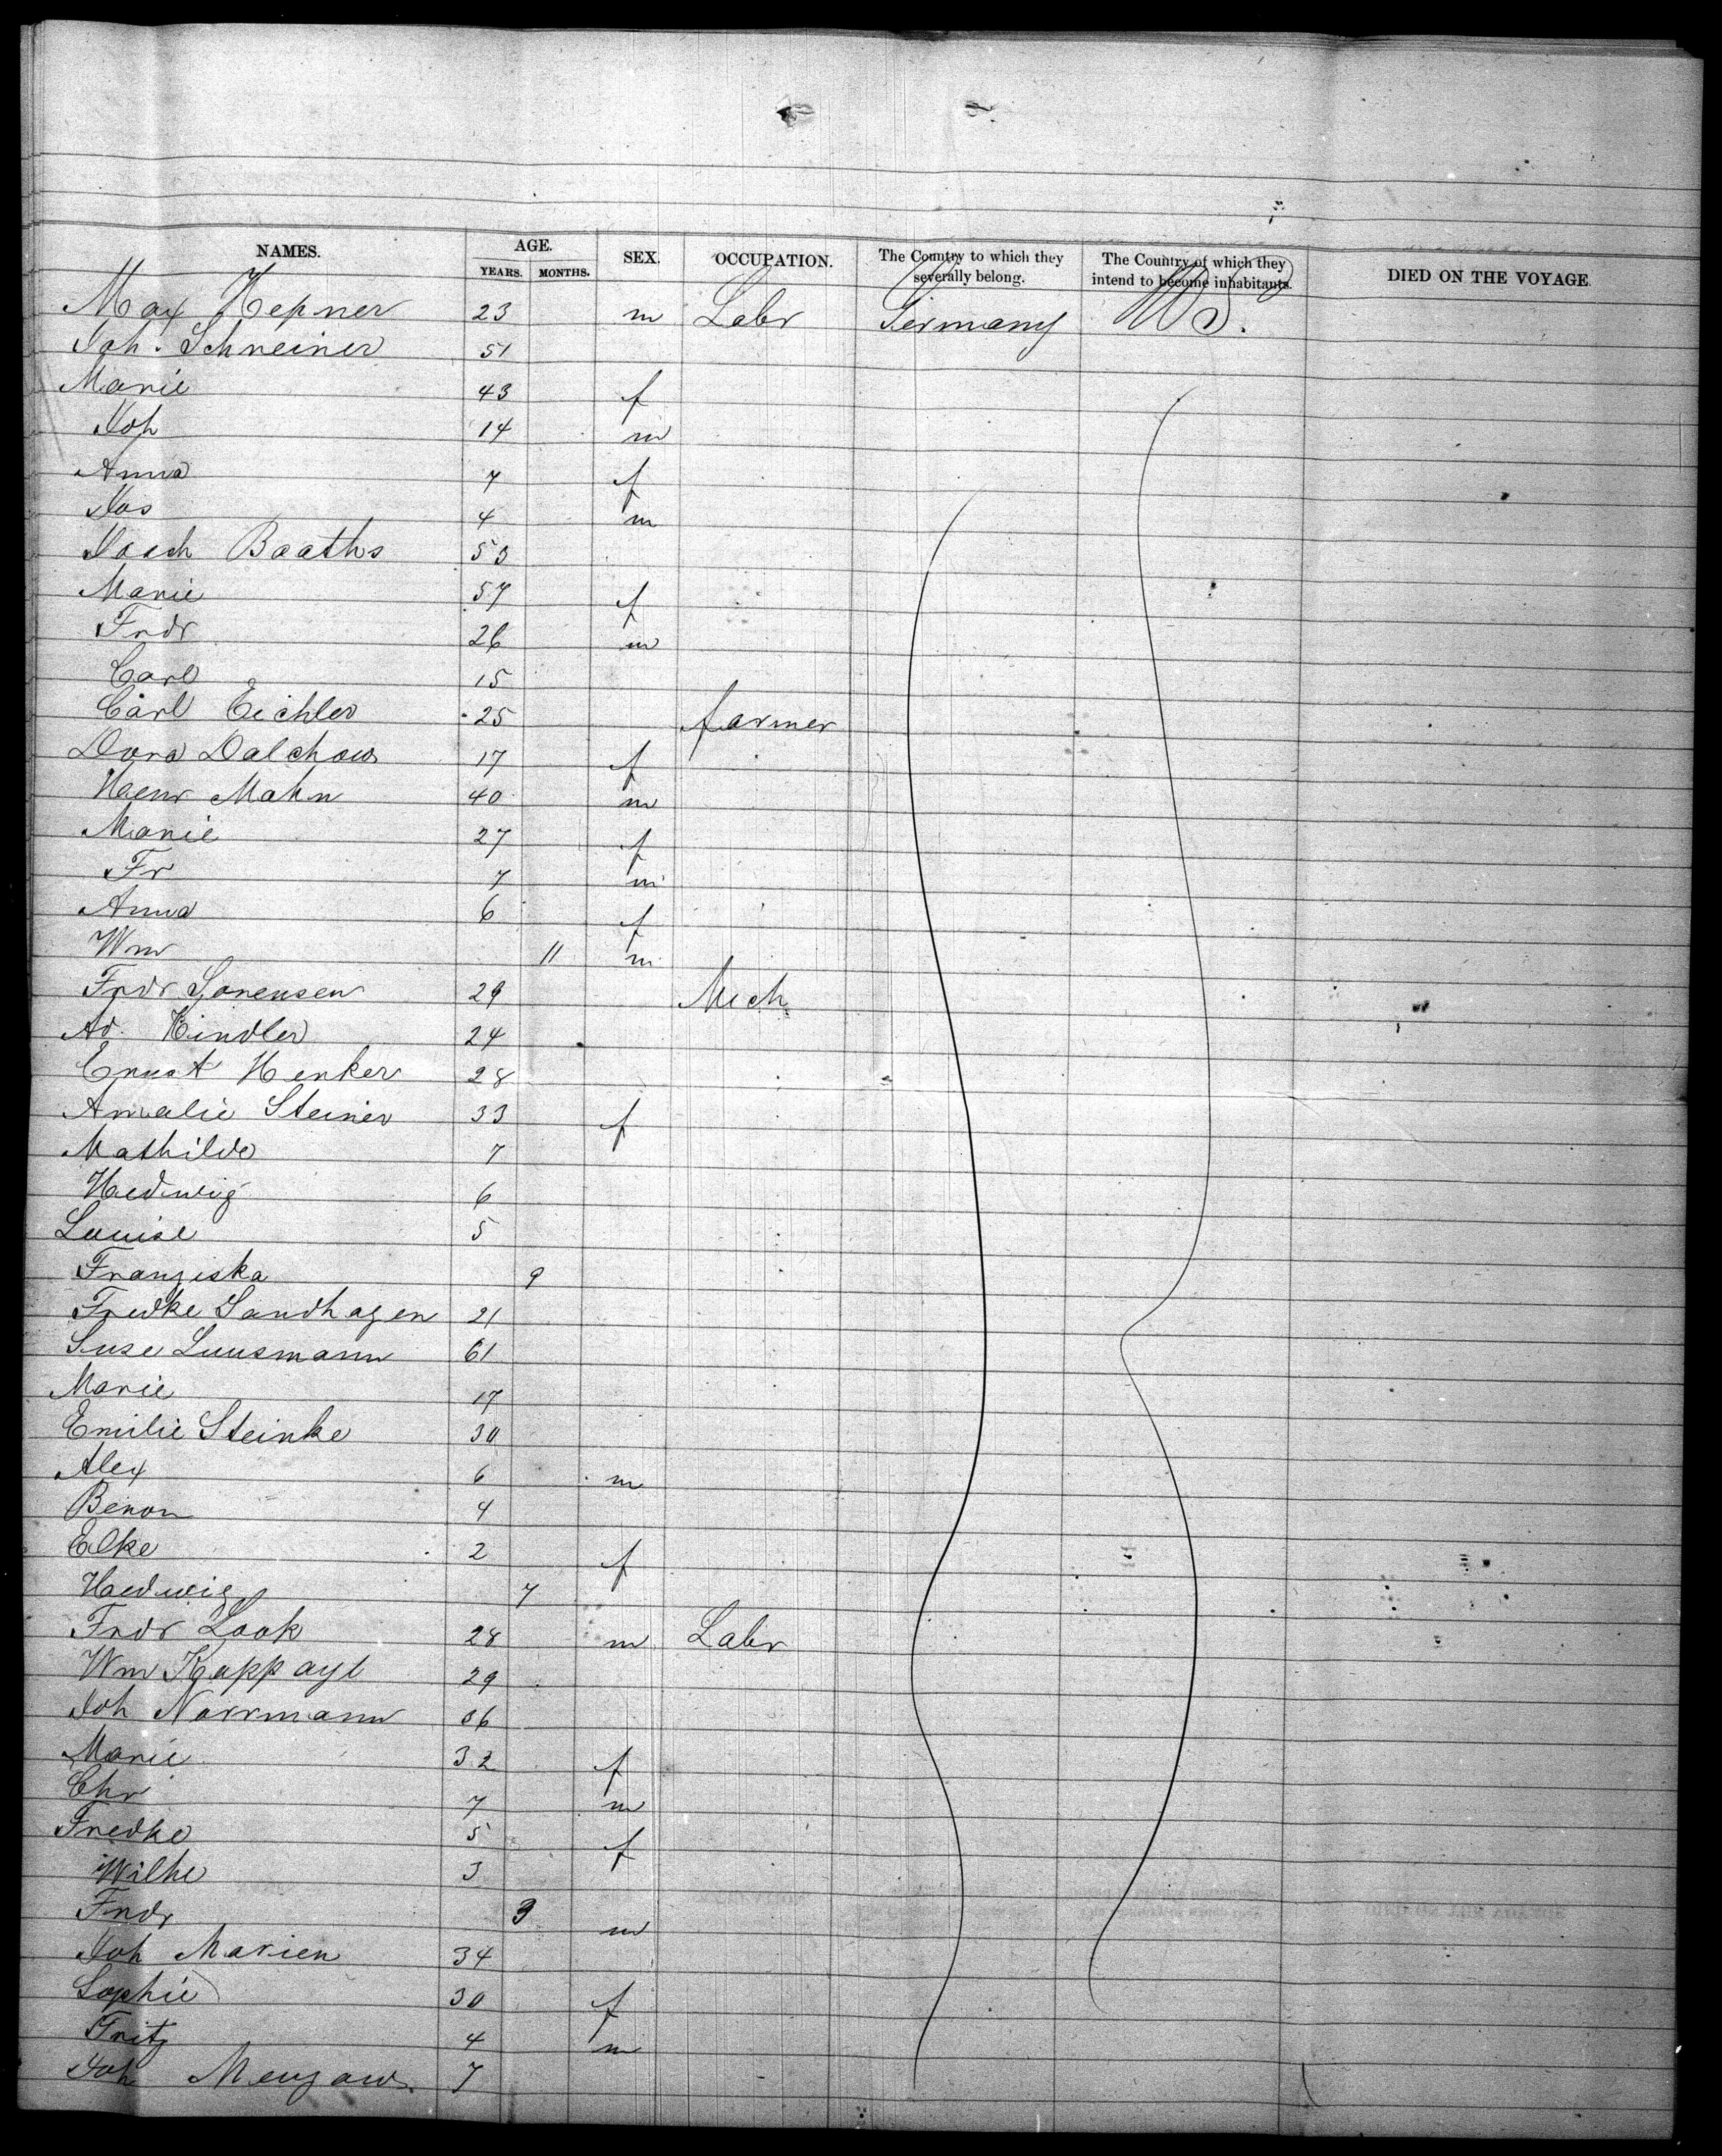 NAMES. AGE. SEX. OCCUPATION. The Country to which they severally belong. The Country of which they intend to become inhabitants. DIED ON THE VOYAGE.
YEARS. MONTHS.
Max Hepner 23 m Labr Germany U.S.
Joh. Schreiner 51
Marie 43 f
Joh 14 m
Anna 7 f
Jos 4 m
Joach Baaths 53
Marie 57 f
Frdr 26 m
Carl 15
Carl Eichler 25 farmer
Dora Dalchow 17 f
Heinr Mahn 40 m
Marie 27 f
Fr 7 m
Anna 6 f
Wm 11 m
Frdr Sorensen 29 Mech
Ad. Kindler 24
Ernst Henker 28
Amalie Steiner 33 f
Mathilde 7
Hedwig 6
Louise 5
Franziska 9
Fredke Sandhagen 21
Suse Luusmann 61
Marie 17
Emilie Steinke 30
Alex 6 m
Benon 4
Elke 2 f
Hedwig 7
Frdr Look 28 m Labr
Wm Kappayl 29
Joh Norrmann 36
Marie 32 f
Chr 7 m
Fredke 5 f
Wilhe 3
Frdr 3 m
Joh Marien 34
Sophie 30 f
Fritz 4 m
Joh Menzaw 7